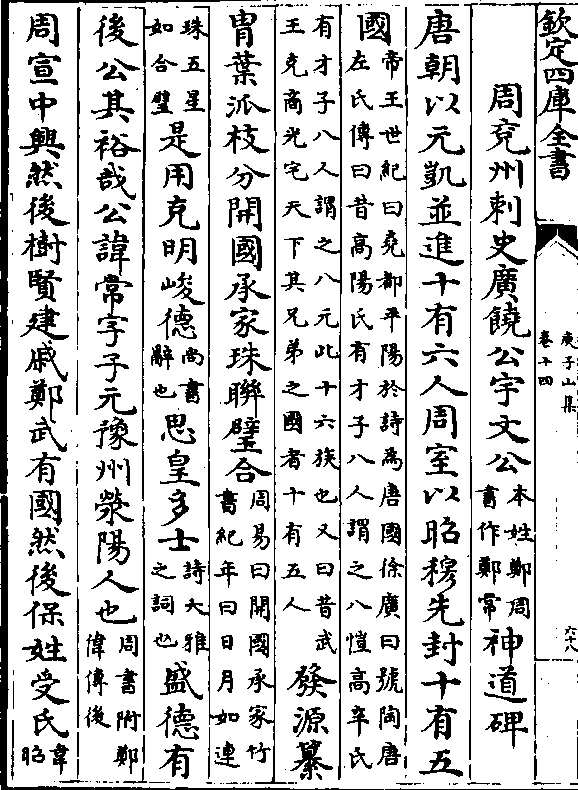 欽定四庫全書
庚子山集
卷十四
六十八
周兖州刺史廣饒公宇文公本姓鄭周書作鄭常神道碑
唐朝以元凱並進十有六人周室以昭穆先封十有五
國帝王世紀曰堯都平陽於詩為唐國徐廣曰號陶唐左氏傳曰昔高陽氏有才子八人謂之八愷高辛氏
有才子八人謂之八元此十六族也又曰昔武王克商光宅天下其兄弟之國者十有五人發源纂
胄葉派枝分開國承家珠聯璧合周易曰開國承家竹書紀年曰日月如連
珠五星如合璧是用克明峻德尚書辭也思皇多士詩大雅之詞也盛德有
後公其裕哉公諱常字子元豫州滎陽人也周書附鄭偉傳後
周宣中興然後樹賢建戚鄭武有國然後保姓受氏韋昭